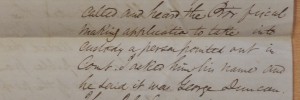 called and heard the For fiscal
making application to take into
custody a person pointed out in
Court I asked him his name and
he said it was George Duncan